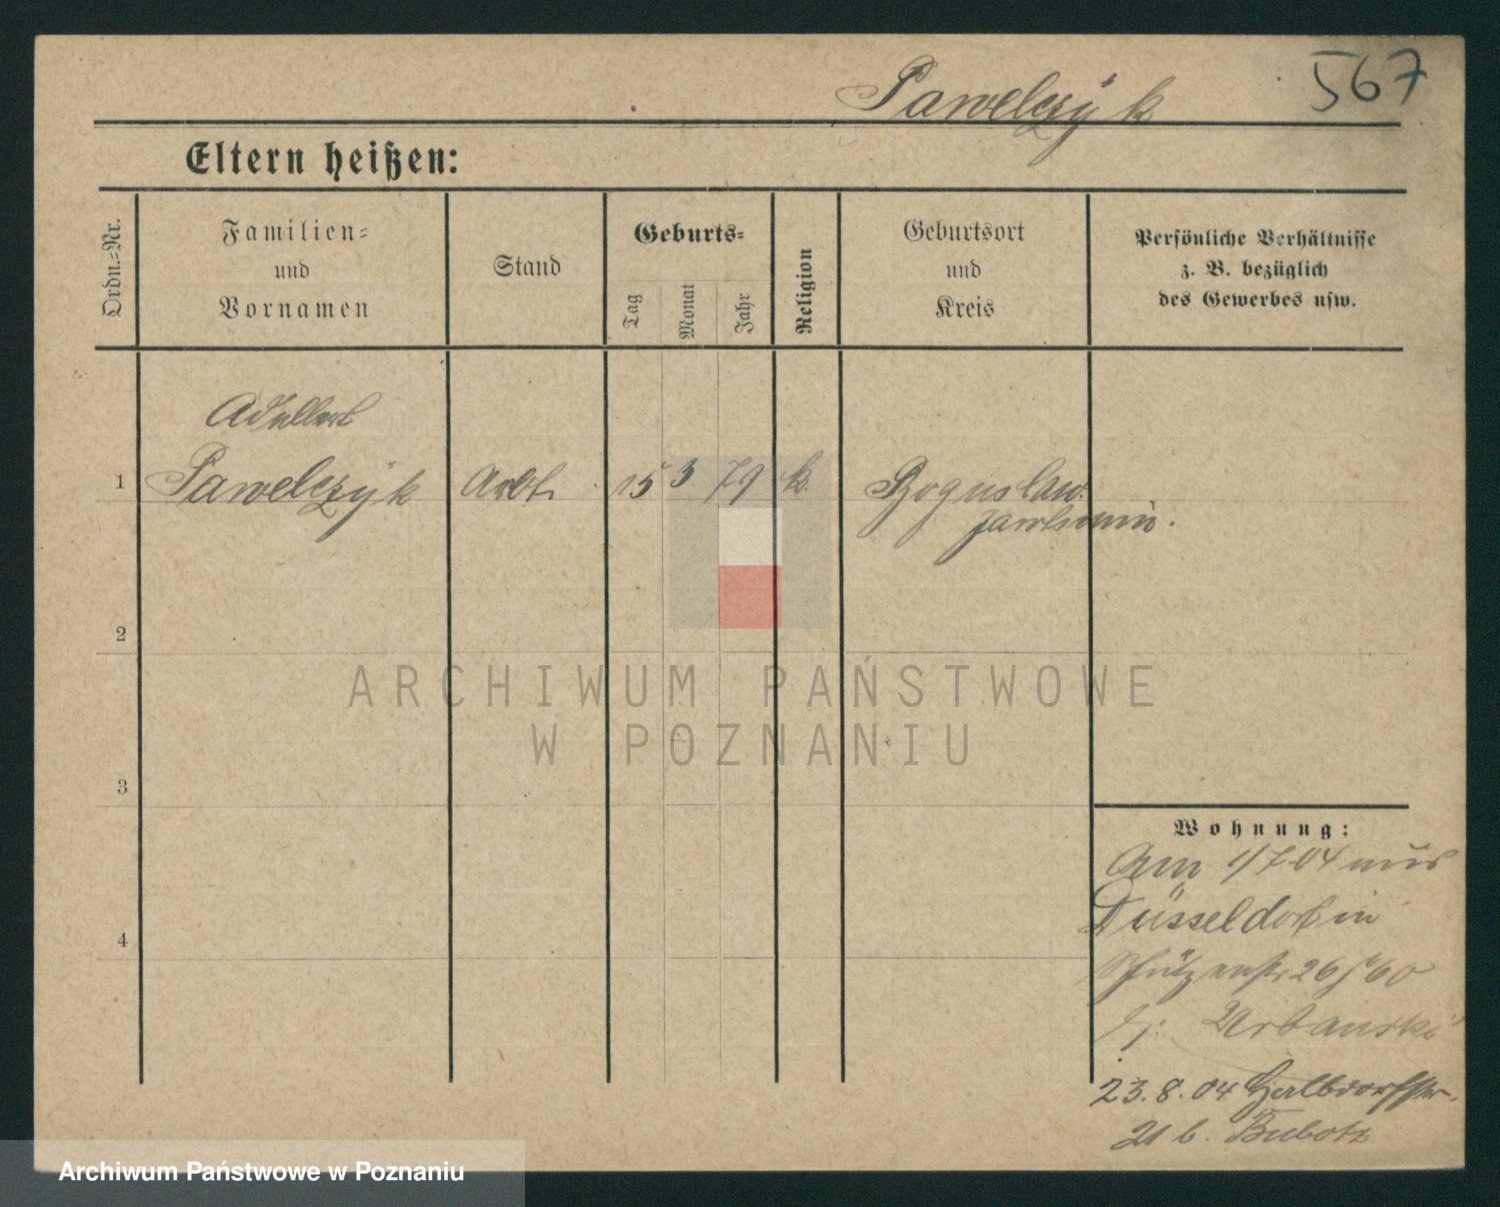 Pawelczyk 567
Eltern heißen:
Ordn.-Nr.
Familien-
und
Vornamen
Stand
Geburts-
Tag
Monat
Jahr
Religion
Geburtsort
und
Kreis
Persönliche Verhältnisse
z. B. bezüglich
des Gewerbes usw.
Adalbert
1 Pawelczyk Arbt. 15 3 79 k. Boguslaw.
2
3
4
ARCHIWUM PAŃSTWOWE
W POZNANIU
Wohnung:
Am 1/7 04 aus
Düsseldorf in
Schützenstr 26
bj. Urbanski
23.8.04 Halbdorfstr.
21 b. Bubotz
Archiwum Państwowe w Poznaniu